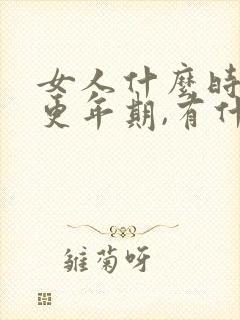 女人什麼時
更年期,有什
雏菊呀